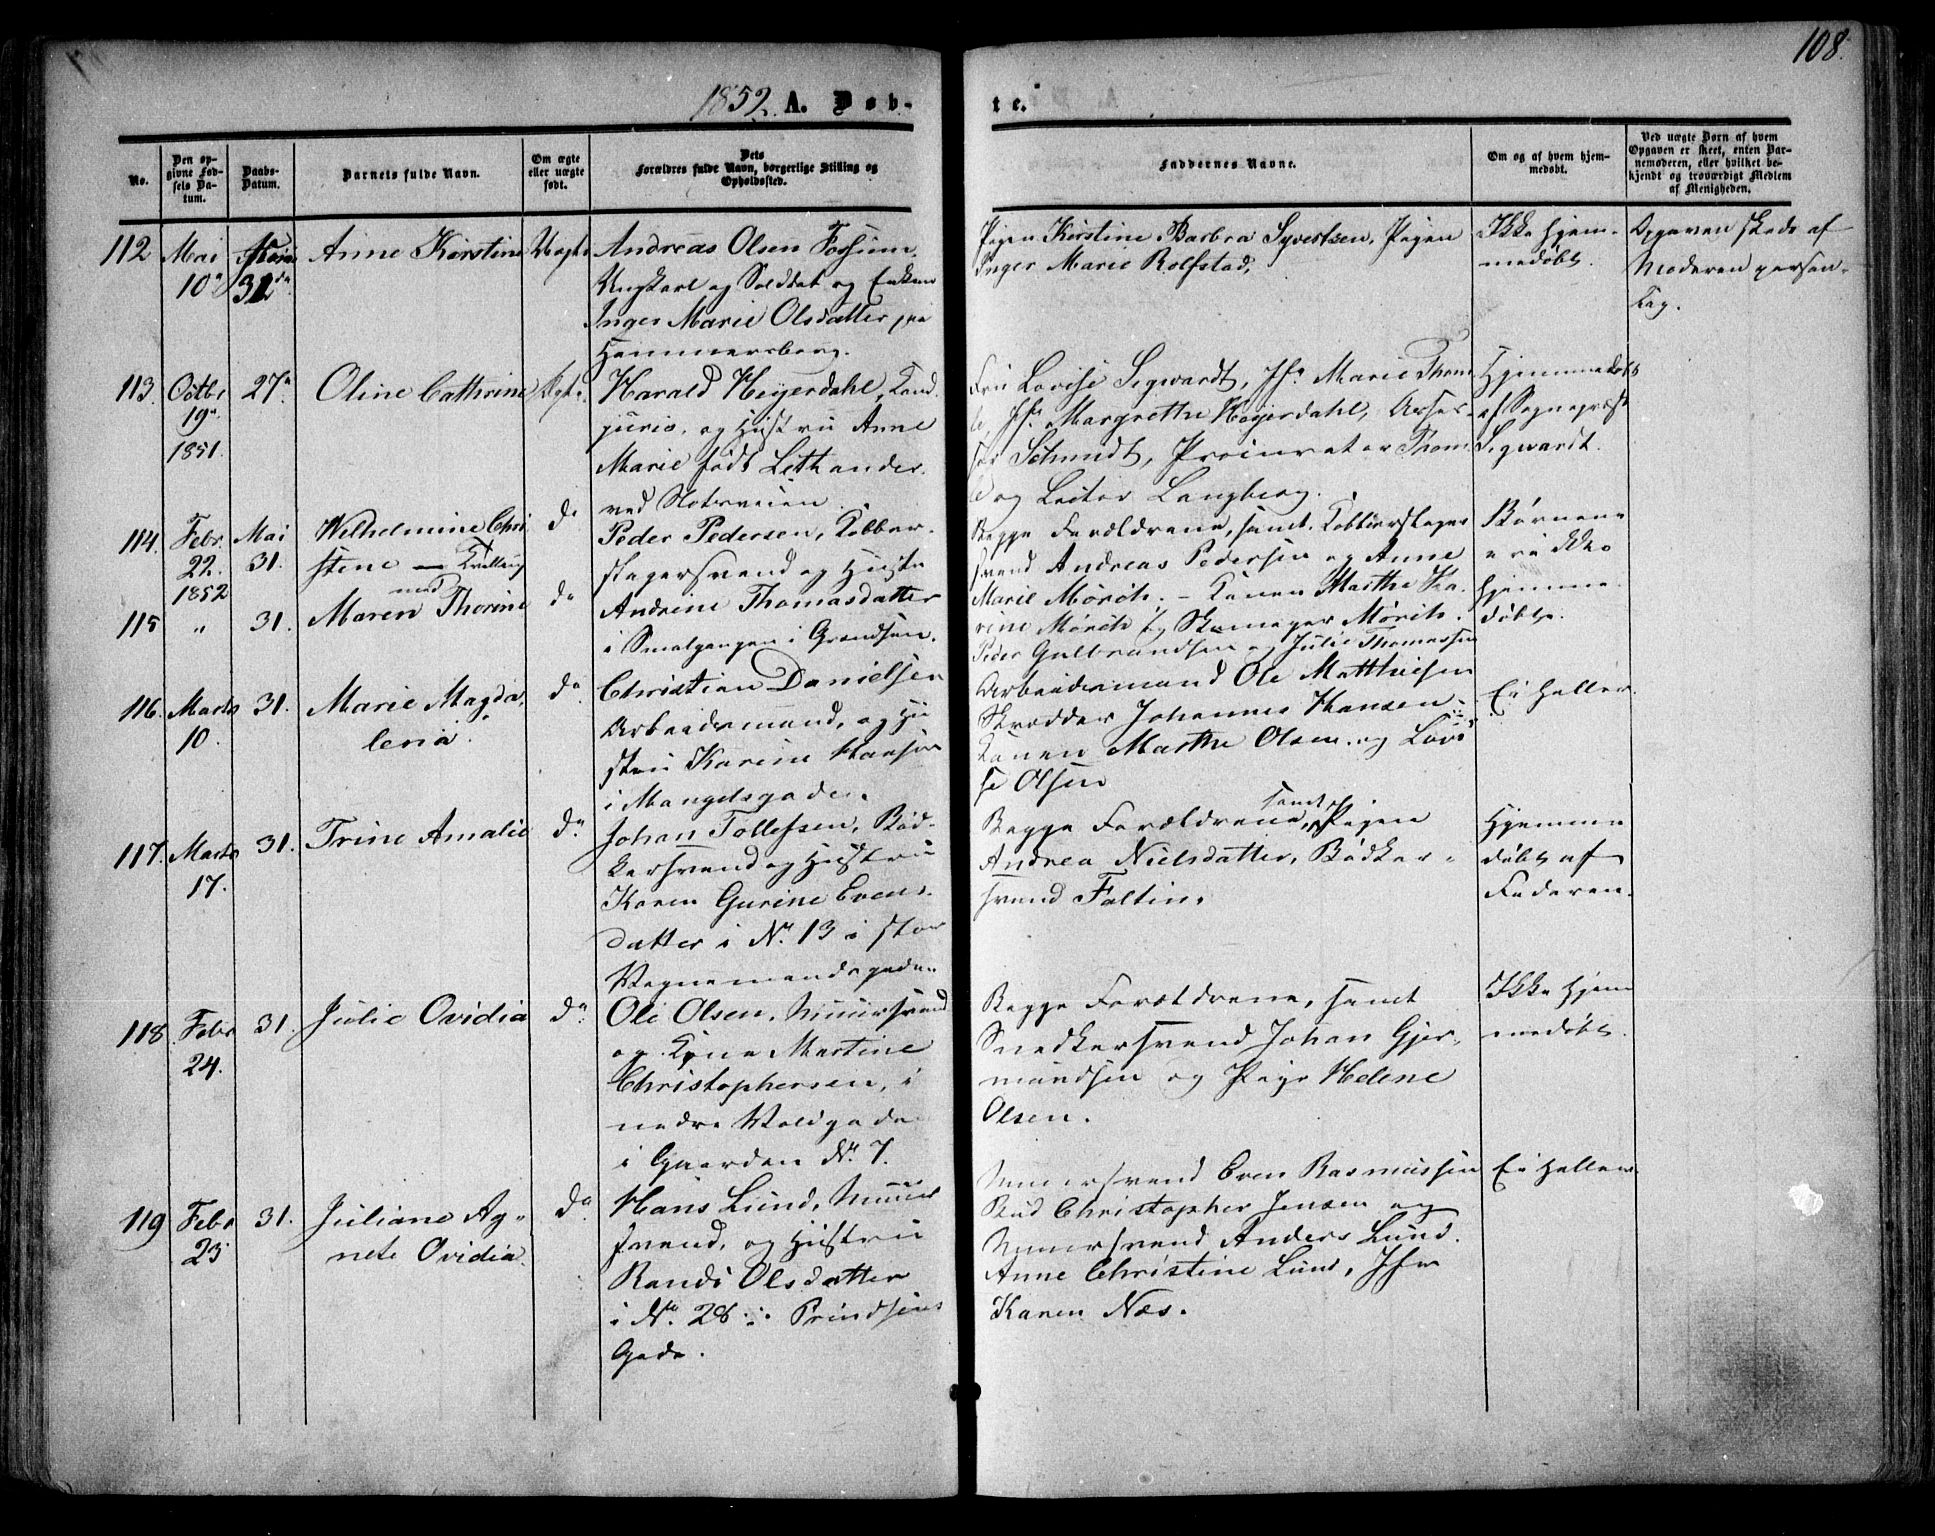 108.
1852. A. Døb-
te.
No.
Den op-
givne Fød-
sels Da-
tum.
Daabs-
Datum.
Barnets fulde Navn.
Om ægte
eller uægte
født.
Dets
Forældres fulde Navn, borgerlige Stilling og
Opholdssted.
Faddernes Navne.
Om og af hvem hjem-
medøbt.
Ved uægte Børn af hvem
Opgaven er skeet, enten Bar-
nemoderen, eller hvilket be-
kjendt og troværdigt Medlem
af Menigheden.
112
Mai
10
31
Anne Kirstine
Uægte
Andreas Olsen Fossum,
Ungkarl og Soldat og Enken
Inger Marie Olsdatter paa
Hammersborg.
Pigen Kirstine Barbra Syvertsen, Pigen
Inger Marie Rolfstad,
Ikke hjem-
medøbt.
Opgaven skede af
Moderen person-
lig.
113.
Octbr
19
1851.
27
Oline Cathrine
Ægte
Harald Heyerdahl, Cand.
juris, og Hustru Anne
Marie født Lethander
ved
Fru Lovise Segwardt, Jfr Marie Thom-
le, Jfr Margrethe Heyerdahl, Asses-
sor Schmidt, Procurator Thom-
le og Lector Langberg.
Hjemmedøbt
af Sognepræst
Segwardt.
114.
Febr.
22.
1852
Mai
31.
Wilhelmine Chri
stine — Tvilling
med
do
Peder Pedersen, Kobber-
slagersvend og Hustru
Andrine Thomasdatter
i Smalgangen i Grændsen.
Begge Forældrene, samt Kobberslager
svend Andreas Pedersen og Anne
Marie Mørch. – Konen Marthe Ka-
rine Mørch og Skomager Mørch.
Peder Gulbrandsen og Julie Thomassen
Børnene
ere ikke
hjemme-
døbte.
115
"
31.
Maren Thorine
do
116.
Marts
10.
31.
Marie Magda-
lena.
do
Christian Danielsen
Arbeidsmand, og Hu
stru Karine Hansen
i Mangelsgaden.
Arbeidsmand Ole Matthiesen
Skrædder Johannes Hansen –
Konen Marthe Olsen og Lovi
se Olsen
Ei heller.
117.
Marts
17.
31.
Trine Amalie
do
Johan Tollefsen, Bød-
kersvend og Hustru
Karen Gurine Evens-
datter i No. 13 i store
Vognmandsgaden
Begge Forældrene, samt Pigen
Andrea Nielsdatter, Bødker-
svend Foltin.
Hjemme
døbt af
Faderen.
118.
Febr
24.
31.
Julie Ovidia
do
Ole Olsen, Muursvend
og Kone Martine
Christophersen, i
nedre Voldgaden
i Gaarden No. 7.
Begge Forældrene, samt
Snedkersvend Johan Gjer-
mundsen og Pige Helene
Olsen.
Ikke hjem
medøbt.
119
Febr
23
31.
Juliane Ag-
nete Ovidia.
do
Hans Lund, Muur
svend, og Hustru
Randi Olsdatter
i No. 28 i Prindsens
Gade.
Muursvend Even Rasmussen
Bud Christopher Jensen og
Muursvend Anders Lund.
Anne Christine Lund, Jfr
Karen Næs.
Ei heller